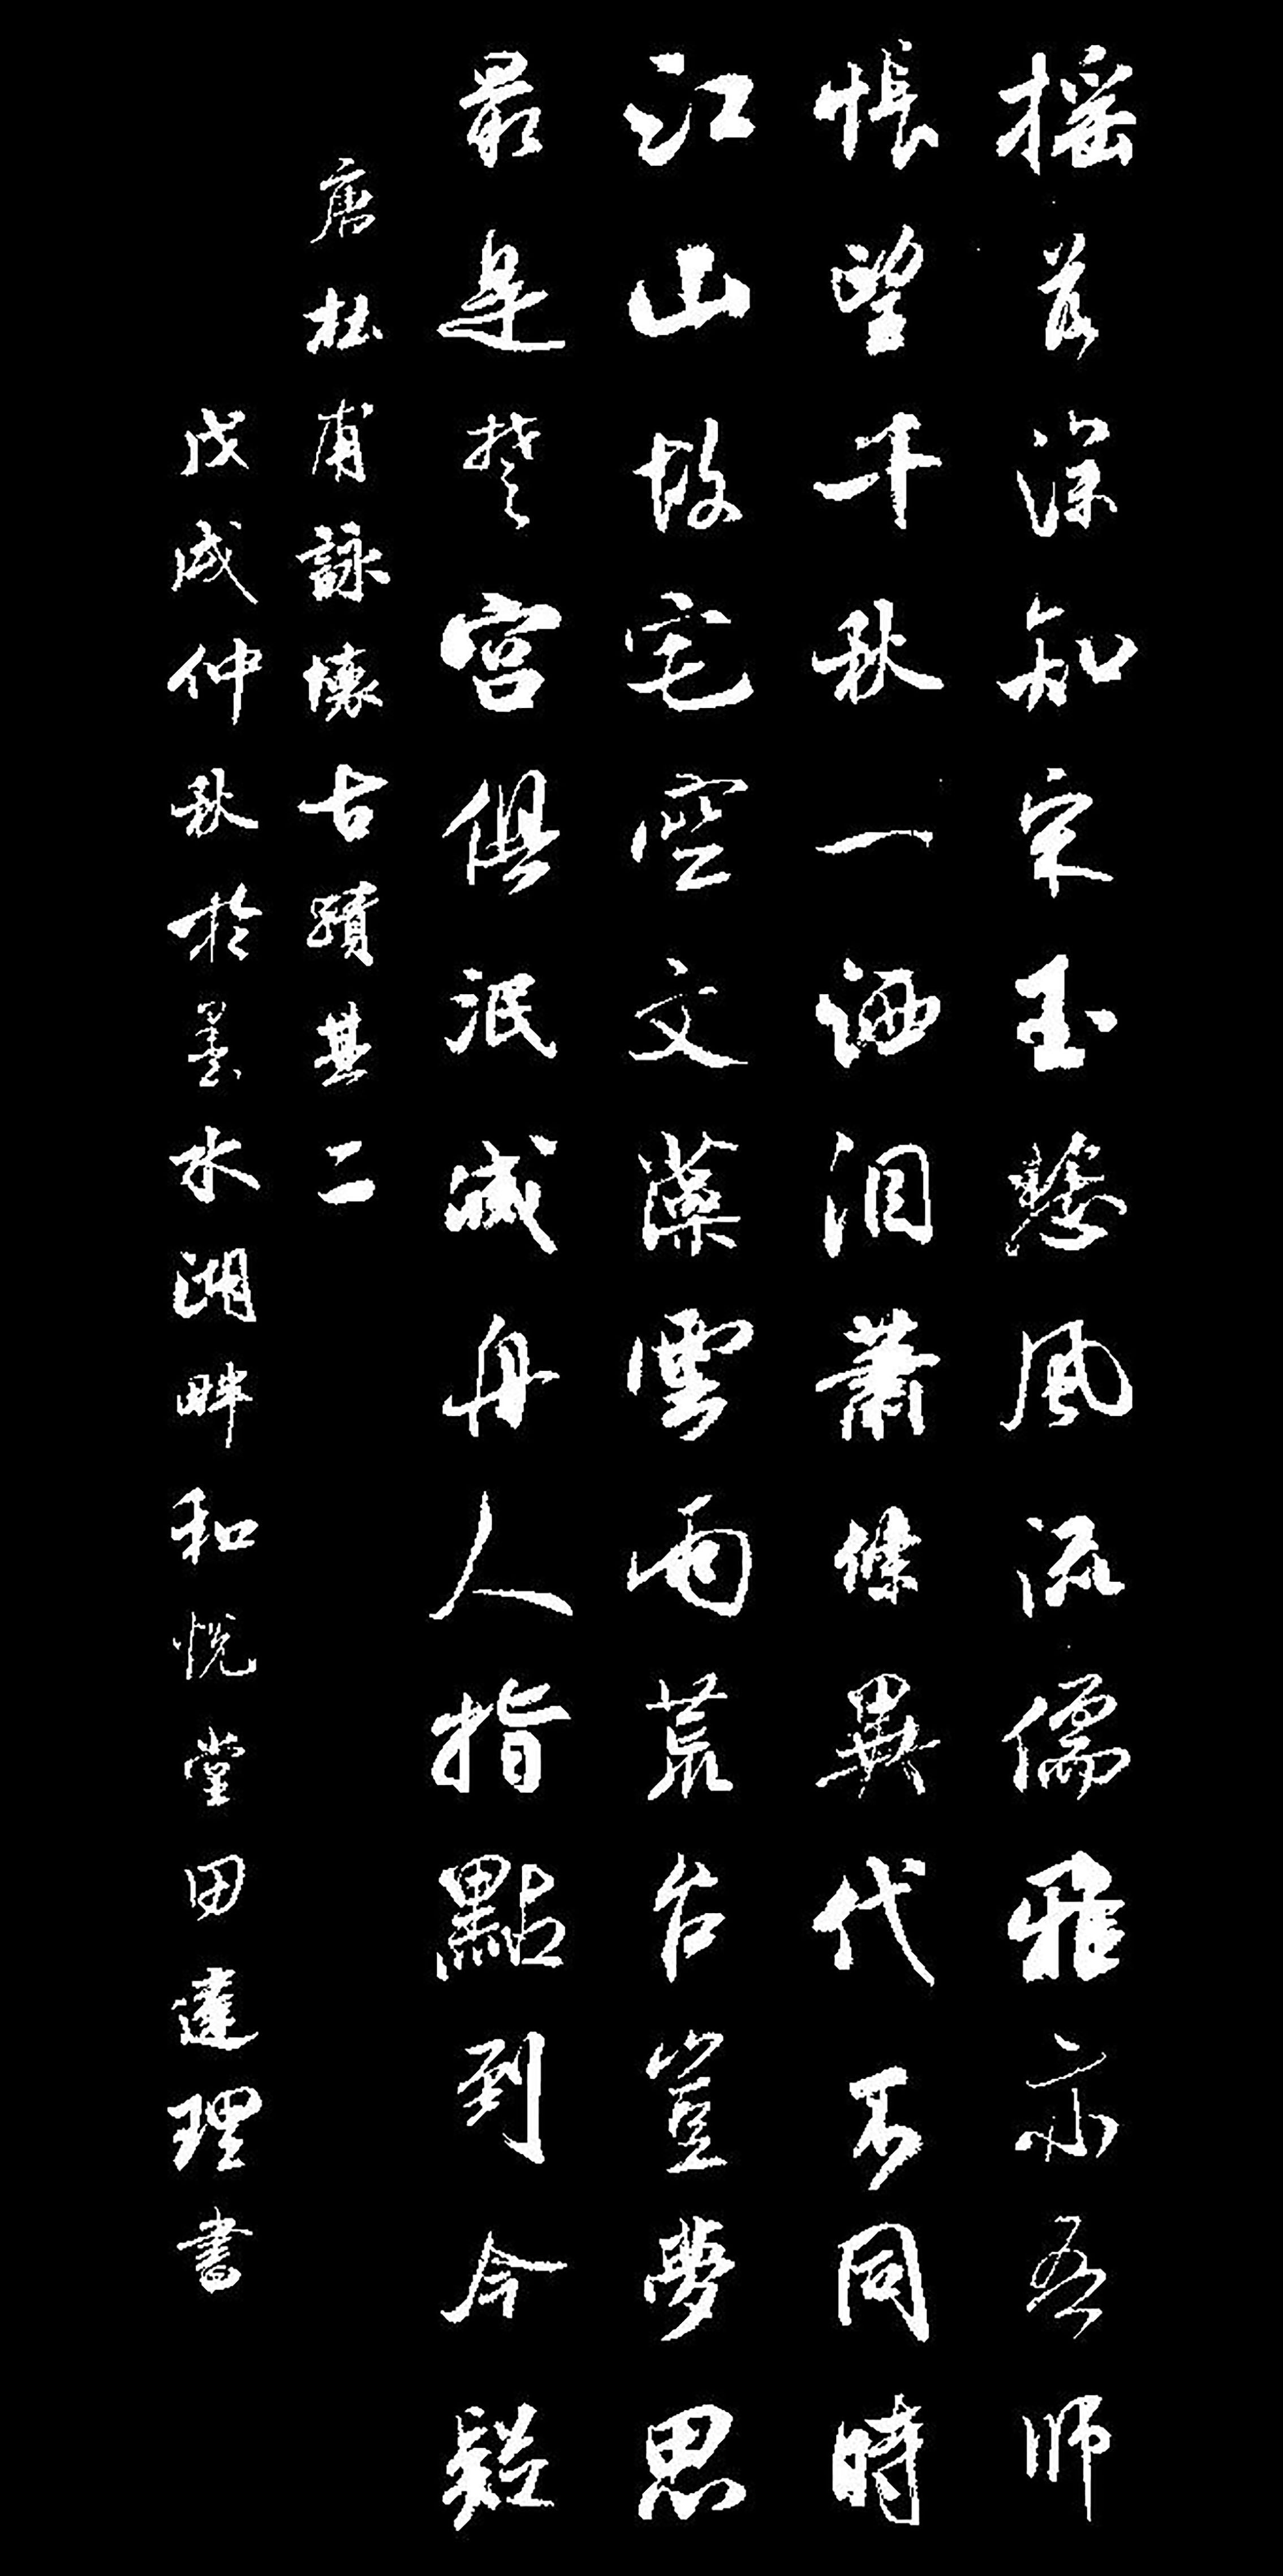 摇落深知宋玉悲風流儒雅亦吾師
悵望千秋一洒泪蕭條異代不同時
江山故宅空文藻雲雨荒台豈夢思
最是楚宮俱泯滅舟人指點到今疑
唐杜甫詠懷古蹟其二
戊戌仲秋於墨水湖畔和悅堂田達理書